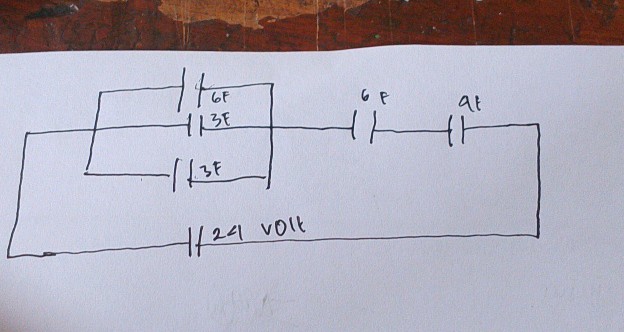 6F
3F
3F
6 F
9F
24 VOlt